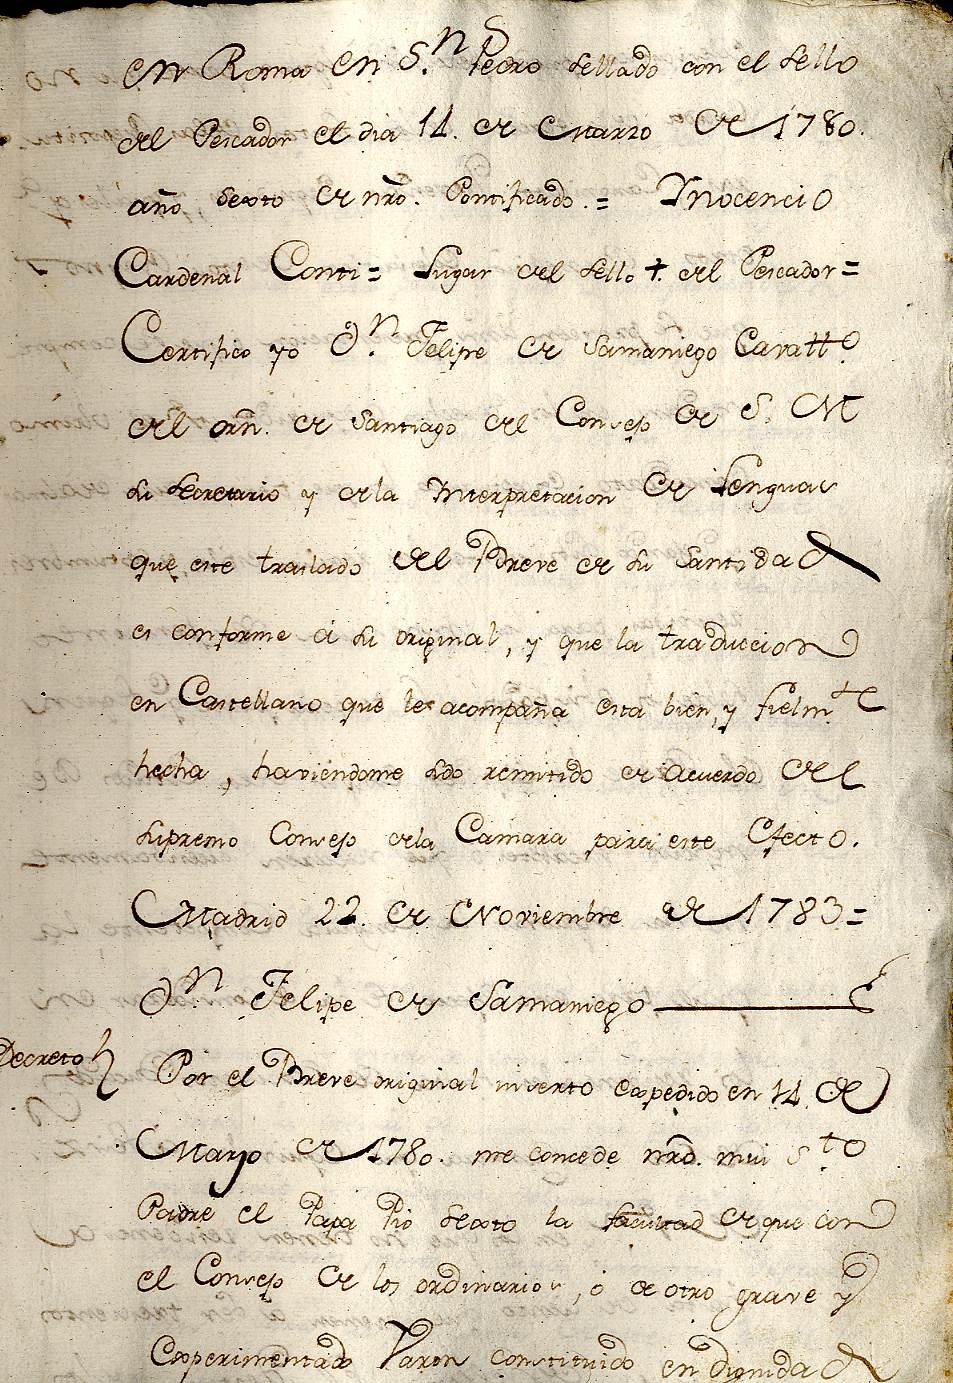 en Roma en S.n Pedro sellado con el sello
del Pescador el dia 14. de Marzo de 1780.
año sexto de nro. Pontificado. = Ynocencio
Cardenal Conti = Lugar del sello + del Pescador =
Certifico yo D.n Felipe de Samaniego Cavall.o
del orn. de Santiago del Consejo de S. M
su secretario y de la Ynterpretacion de Lenguas
que este traslado del Breve de su Santidad
es conforme á su original, y que la traduccion
en Castellano que le acompaña esta bien, y fielm.te
hecha, haviendome sido remitido de acuerdo del
supremo Consejo de la Camara para este Efecto.
Madrid 22. de Noviembre de 1783 =
D.n Felipe de Samaniego
Decreto
Por el Breve original inserto expedido en 14. de
Marzo de 1780. me concede nrō. mui S.to
Padre el Papa Pio Sexto la facultad de que con
el Consejo de los ordinarios, ó de otro grave y
Experimentado Varon constituido en dignidad